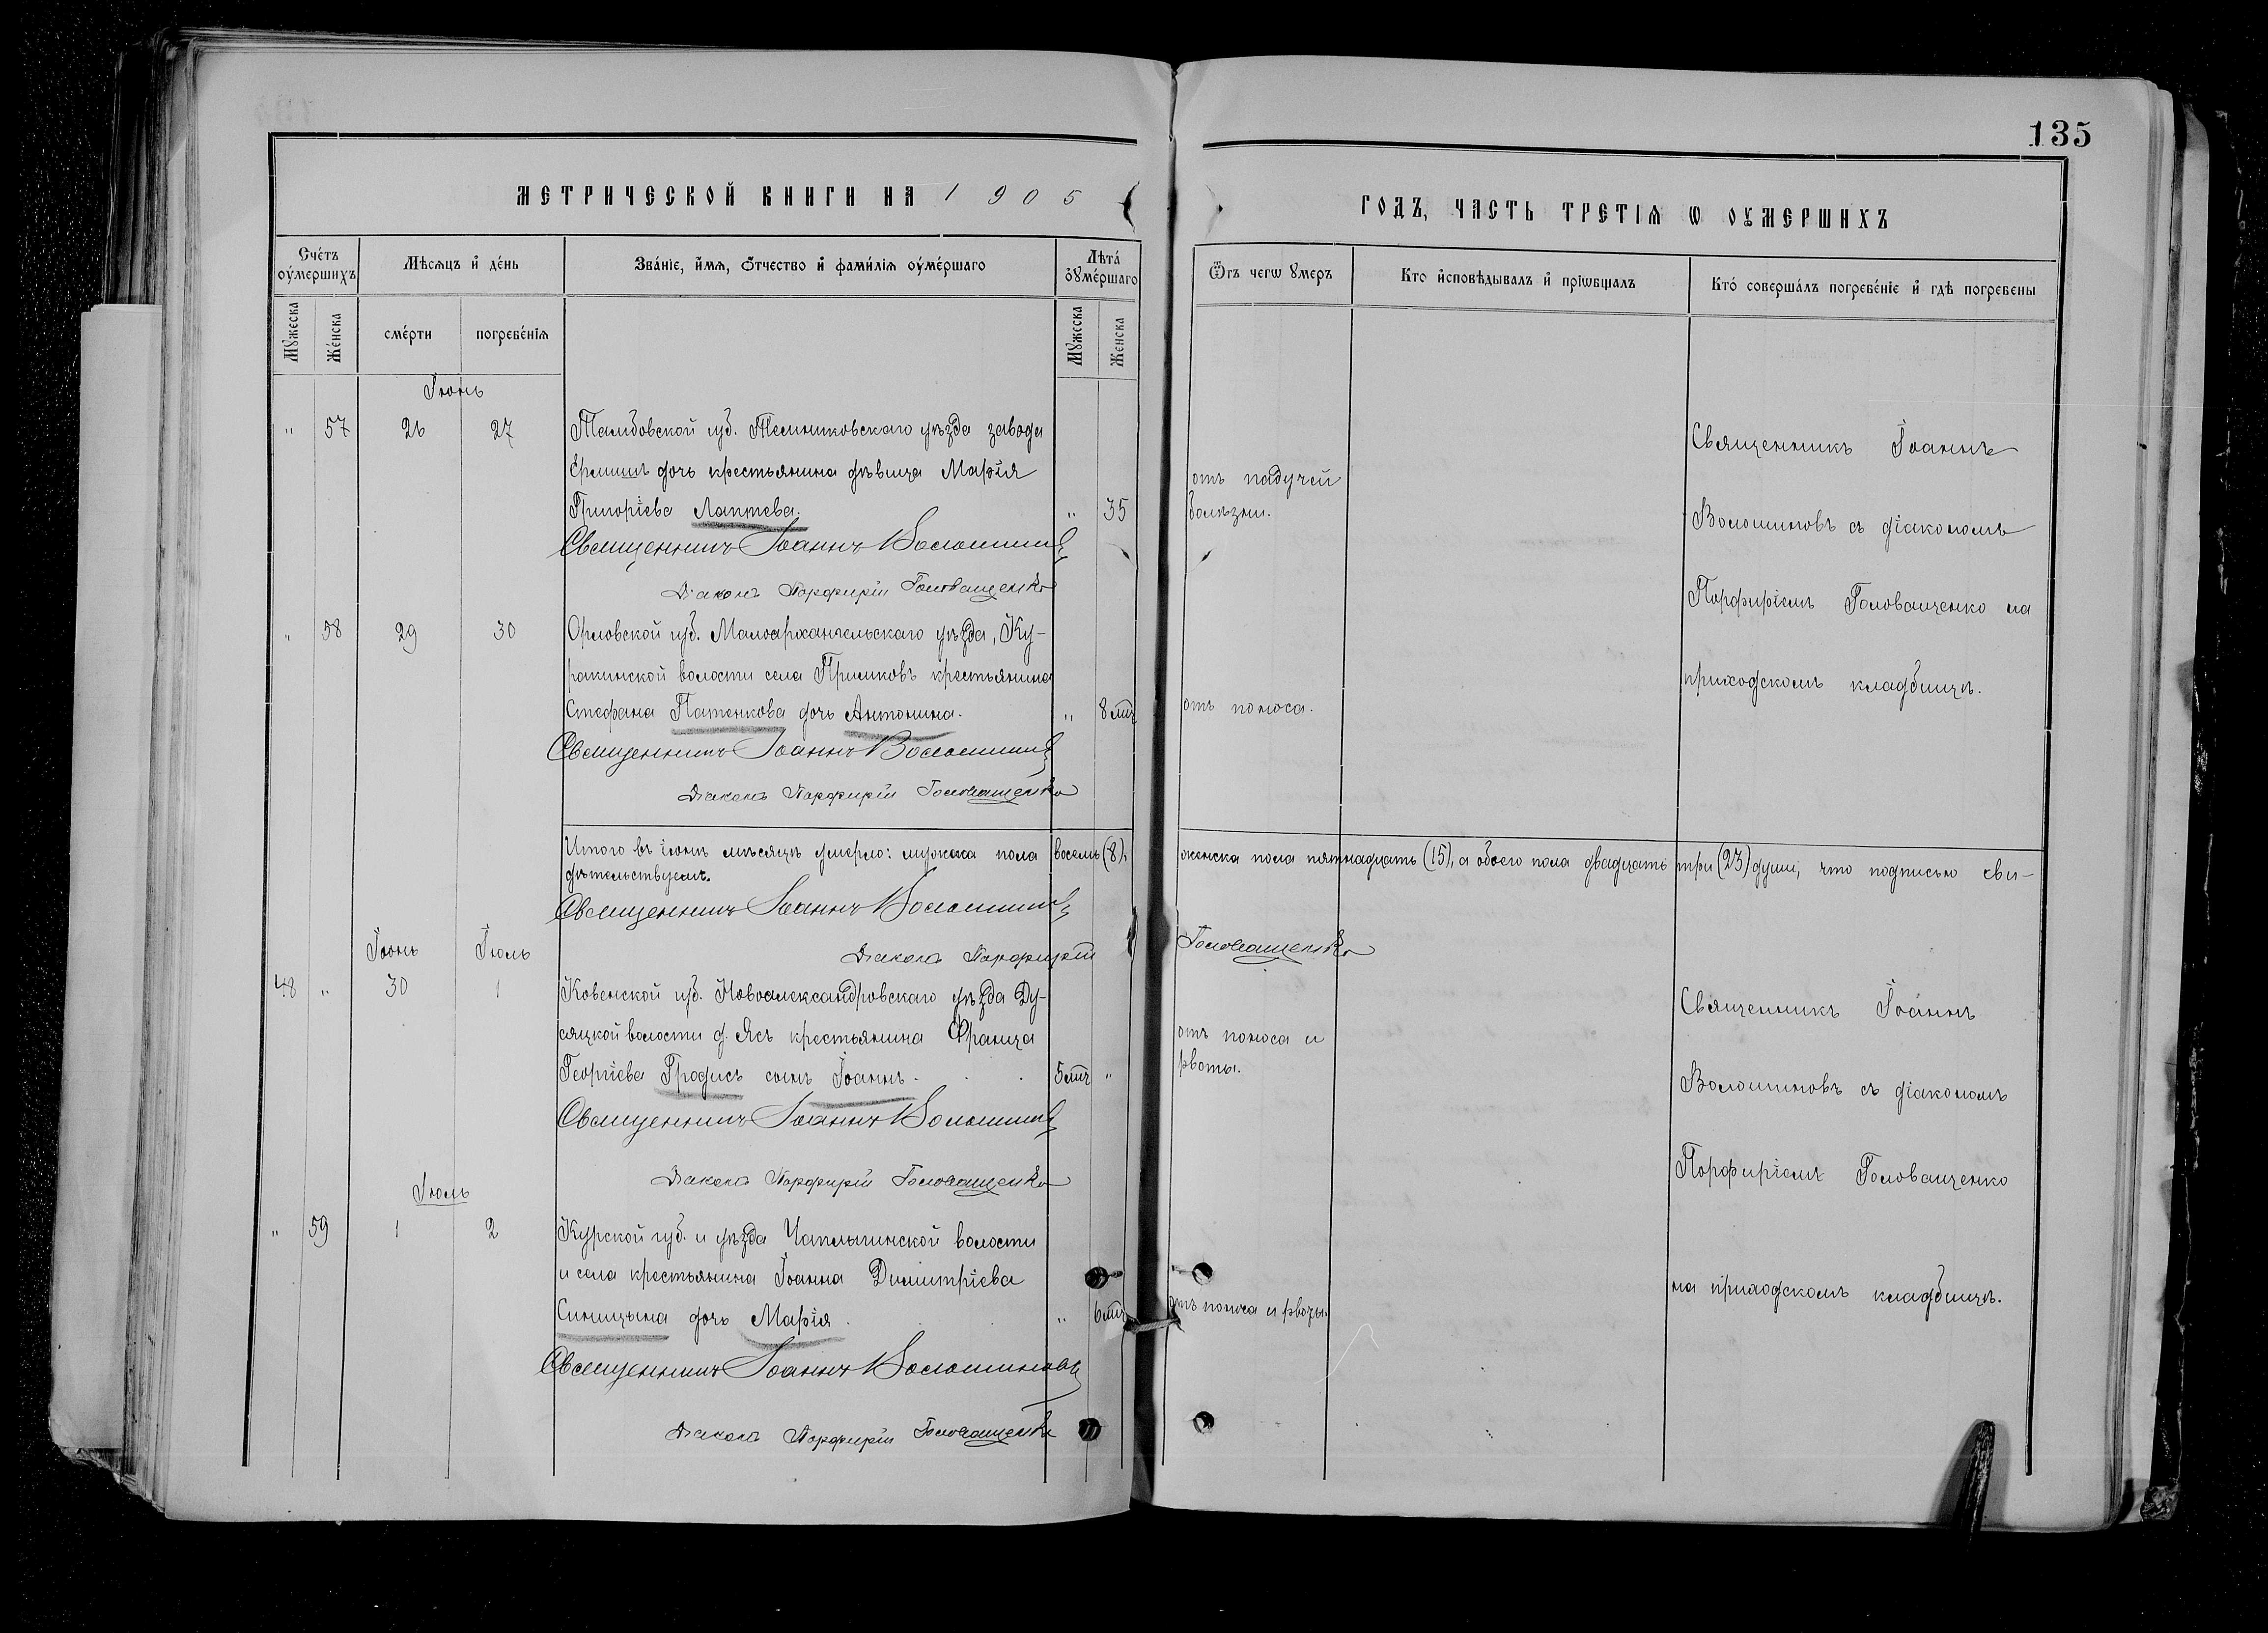 135
МЕТРИЧЕСКОЙ КНИГИ НА 1905
ГОДЪ, ЧАСТЬ ТРЕТІЯ Ѡ ОУМЕРШИХЪ
Счётъ оумершихъ
Мѣсяцъ и день
Званіе, имя, отчество и фамилія оумершаго
Лѣта оумершаго
Ѿ чегѡ умеръ
Кто исповѣдывалъ и пріѡбщалъ
Кто совершалъ погребеніе и гдѣ погребены
Мужеска
Женска
смерти
погребенія
Мужеска
Женска
Іюнь
" 57 26 27 Тамбовской губ. Темниковскаго уѣзда завода
Ермишь дочь крестьянина дѣвица Марѳія
Григоріева Лаптева. " 35
отъ падучей
болѣзни.
Священникъ Іоаннъ
Волошиновъ съ діакономъ
Порфиріемъ Головащенко на
приходскомъ кладбищѣ.
Священникъ Іоаннъ Волошиновъ
Діаконъ Порфирій Головащенко
" 58 29 30 Орловской губ. Малоархангельскаго уѣзда, Ку-
ракинской волости села Приликовъ крестьянина
Стефана Патенкова дочь Антонина. " 8 мѣс
отъ поноса.
Священникъ Іоаннъ Волошиновъ
Діаконъ Порфирій Головащенко
Итого въ іюнѣ мѣсяцѣ умерло: мужеска пола восемь (8), женска пола пятнадцать (15), а обоего пола двадцать три (23) души, что подписью сви-
дѣтельствуемъ.
Священникъ Іоаннъ Волошиновъ
Діаконъ Порфирій Головащенко
Іюнь Іюль
48 " 30 1 Ковенской губ. Новоалександровскаго уѣзда Ду-
сяцкой волости д. Ясъ крестьянина Франца
Георгіева Гродисъ сынъ Іоаннъ. 5 мѣс "
отъ поноса и
рвоты.
Священникъ Іоаннъ
Волошиновъ съ діакономъ
Порфиріемъ Головащенко
на приходскомъ кладбищѣ.
Священникъ Іоаннъ Волошиновъ
Діаконъ Порфирій Головащенко
Іюль
" 59 1 2 Курской губ. и уѣзда Чаплыгинской волости
и села крестьянина Іоанна Димитріева
Синицына дочь Марія. " 6 мѣс
отъ поноса и рвоты.
Священникъ Іоаннъ Волошиновъ
Діаконъ Порфирій Головащенко